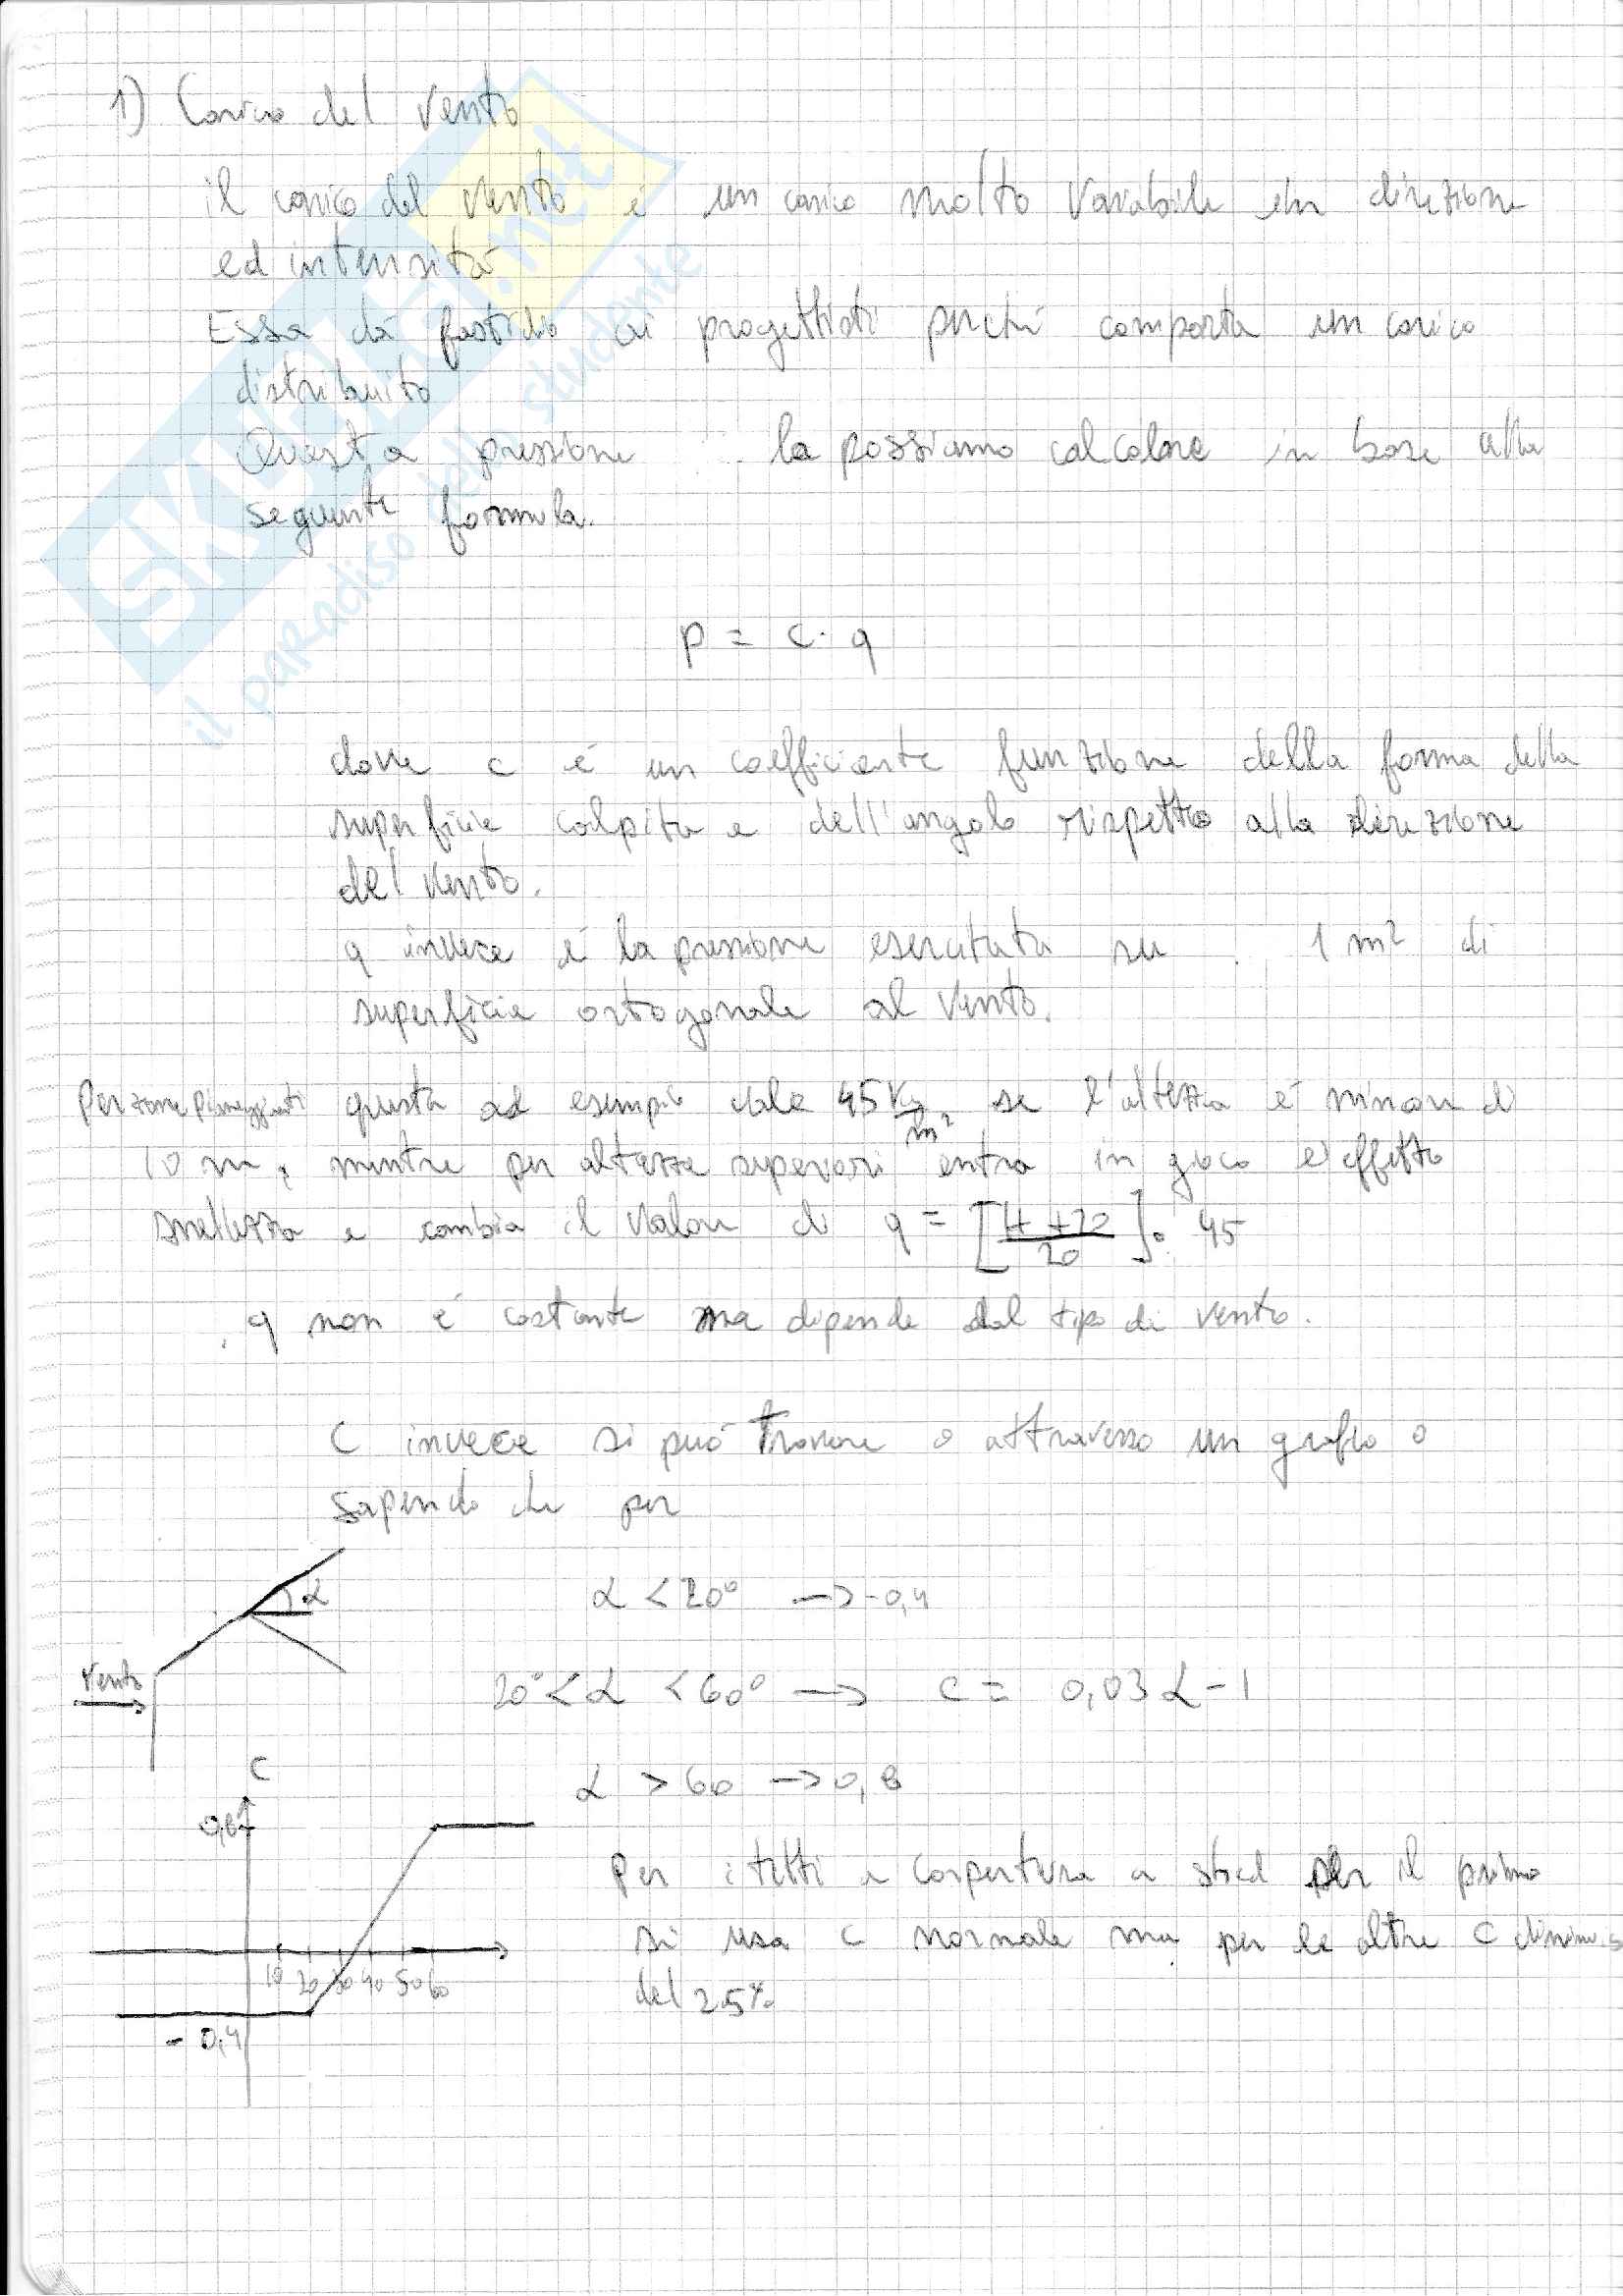 1) Carico del vento
il carico del vento è un carico molto variabile in direzione
ed intensità
Essa dà fastidio ai progettisti perché comporta un carico
distribuito
Questa pressione la possiamo calcolare in base alla
seguente formula.
p = c · q
dove c è un coefficiente funzione della forma della
superficie colpita e dell'angolo rispetto alla direzione
del vento.
q invece è la pressione esercitata su 1 m² di
superficie ortogonale al vento.
Per zone pianeggianti questa ad esempio vale 45 Kg/m² se l'altezza è minore di
10 m, mentre per altezze superiori entra in gioco l'effetto
snellezza e cambia il valore di q = [H+20/20] · 45
q non è costante ma dipende dal tipo di vento.
C invece si può trovare o attraverso un grafico o
sapendo che per
α
α < 20° → -0,4
Vento
20° < α < 60° → c = 0,03 α - 1
C
α > 60 → 0,8
0,8
Per i tetti a copertura a shed per il primo
si usa c normale ma per le altre C
10 20 30 40 50 60
del 25%
- 0,4
SKUOLA.net
il paradiso dello studente